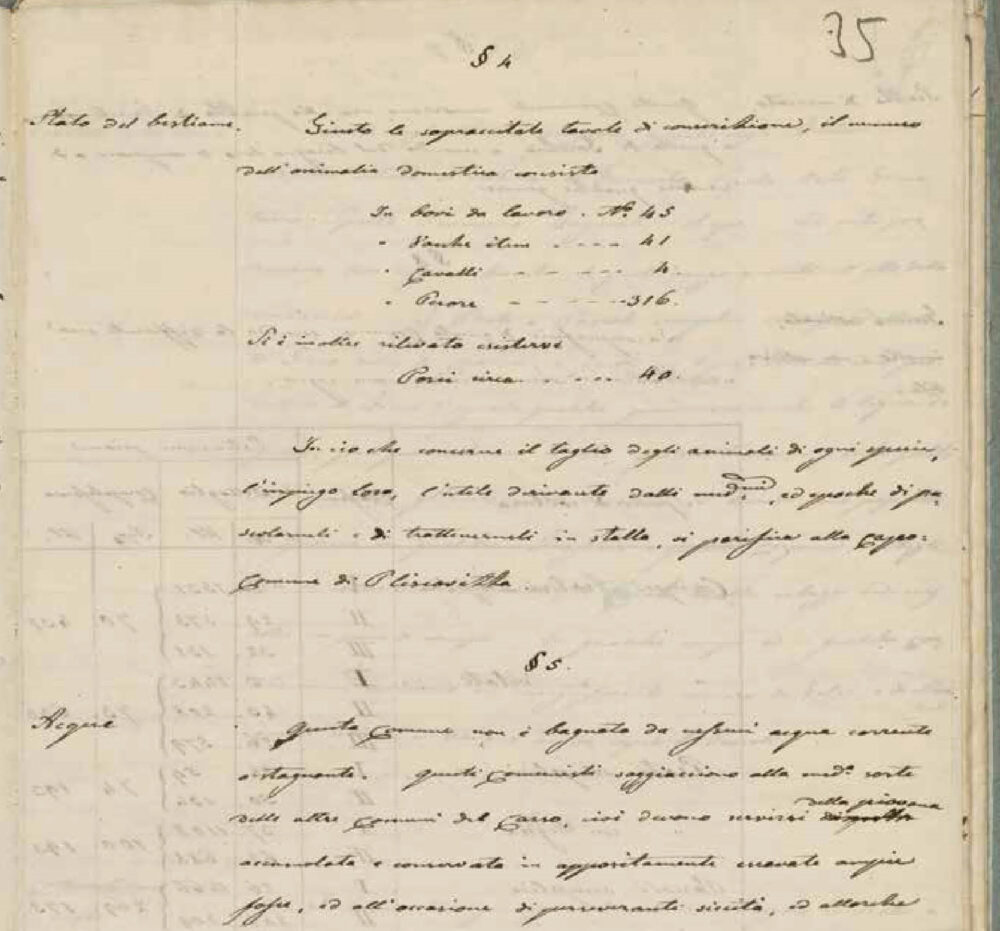 35
§ 4
Stato del bestiame. Giusto le sopracitate tavole di conscrizione, il numero
dell'animalia domestica consiste
In bovi da lavoro . N.° 45
" Vacche itine . . . . 41
" Cavalli - - - - - 4.
" Pecore - - - - - 316.
Si è inoltre rilevato esistervi
Porci circa . . . . . 40.
In ciò che concerne il taglio degli animali di ogni specie,
l'impiego loro, l'utile derivante dalli med.mi, ed epoche di pa=
scolarneli e di trattenerneli in stalla, si parifica alla Capo=
Comune di Pliscovizza
§ 5.
Acque Questa Comune non è bagnata da nessuna acqua corrente
o stagnante. Questi comunisti soggiacciono alla med.a sorte
delle altre Comuni del Carso, cioè devono servirsi della piovana
accumulata e conservata in appositamente escavate ampie
fosse, ed all'occasione di perseveranti siccità, ed allorche